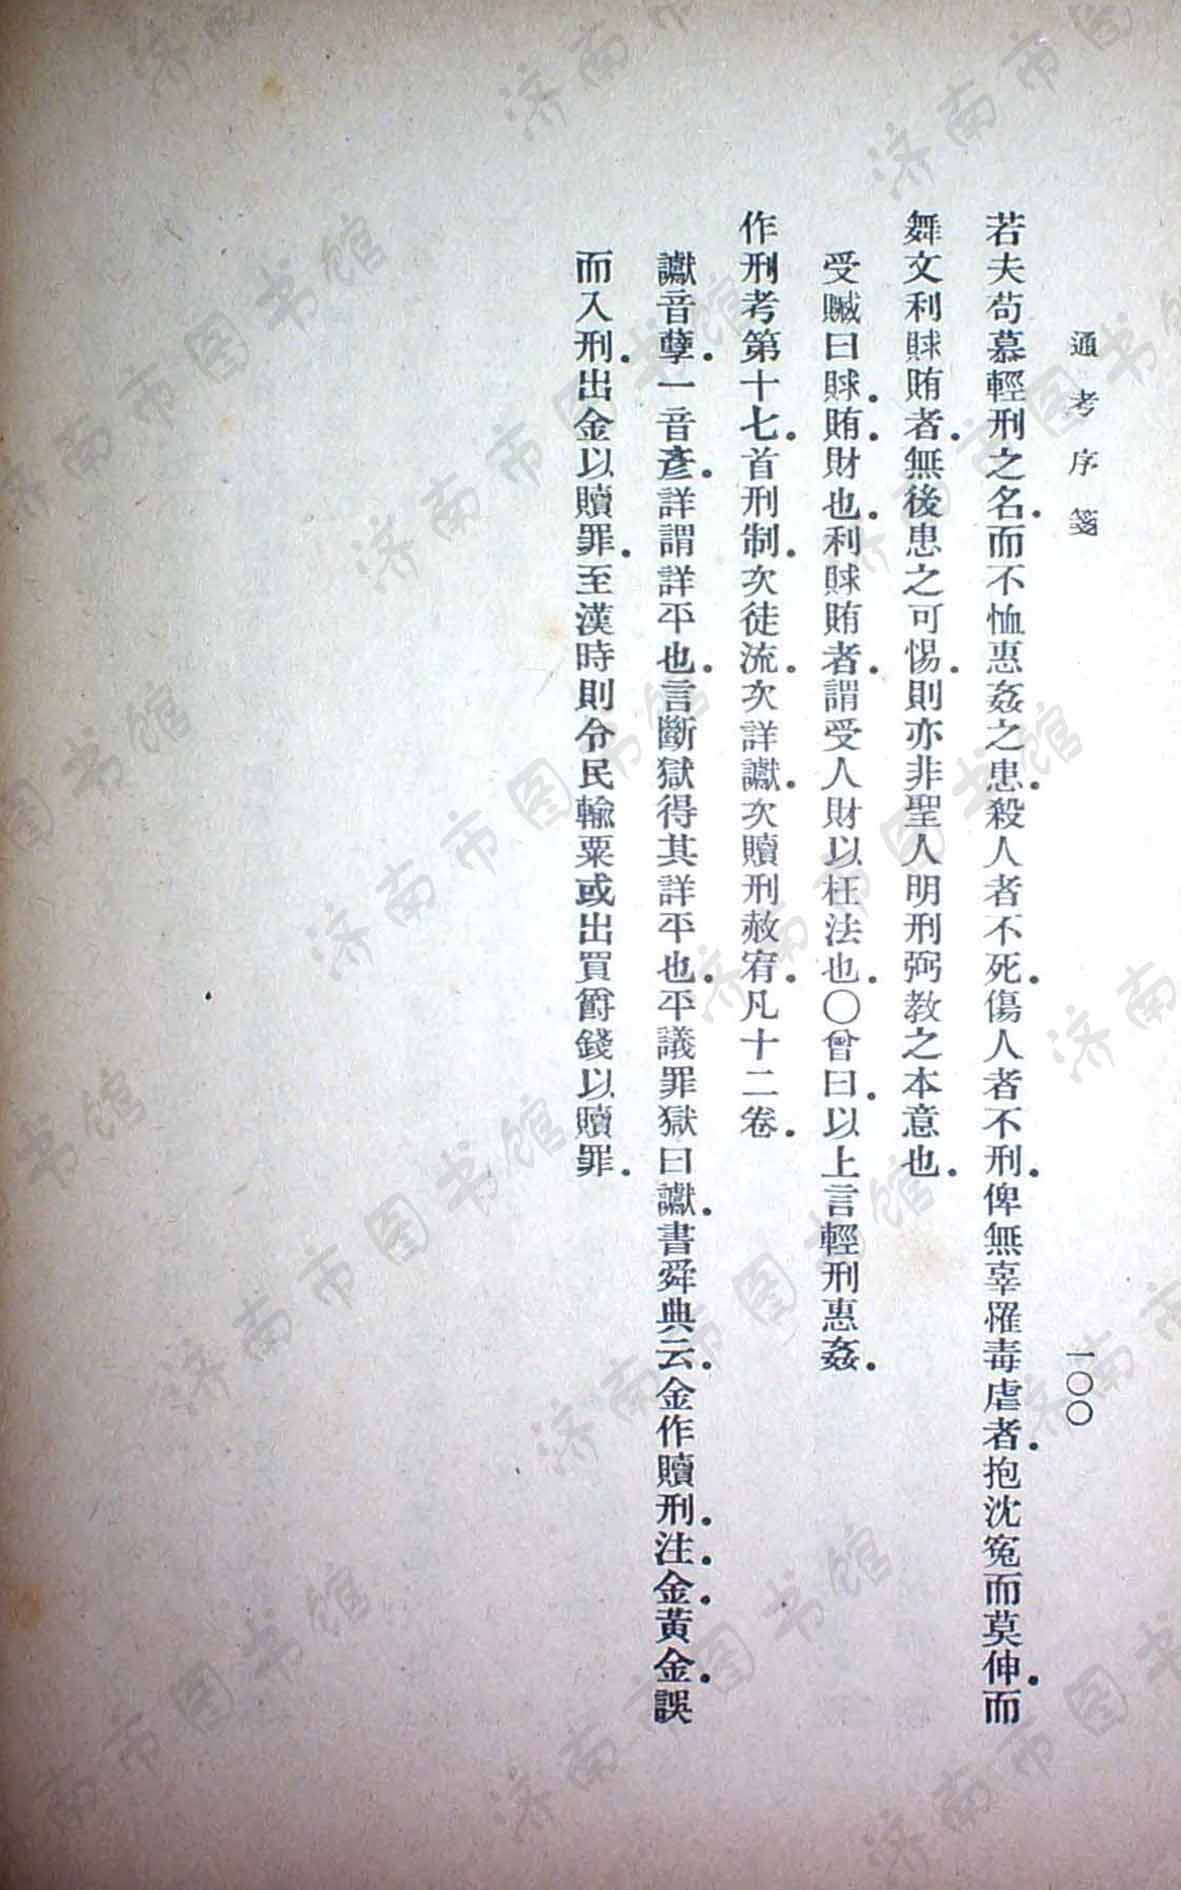 通考序箋
一〇〇
若夫苟慕輕刑之名.而不恤惠姦之患.殺人者不死.傷人者不刑.俾無辜罹毒虐者.抱沈寃而莫伸.而
舞文利賕賄者.無後患之可惕.則亦非聖人明刑弼教之本意也.
受贓曰賕.賄.財也.利賕賄者.謂受人財以枉法也.〇曾曰.以上言輕刑惠姦.
作刑考第十七.首刑制.次徒流.次詳讞.次贖刑赦宥.凡十二卷.
讞音孽.一音彥.詳謂詳平也.言斷獄得其詳平也.平議罪獄曰讞.書舜典云.金作贖刑.注.金.黃金.誤
而入刑.出金以贖罪.至漢時則令民輸粟或出買爵錢以贖罪.
济南市图书馆